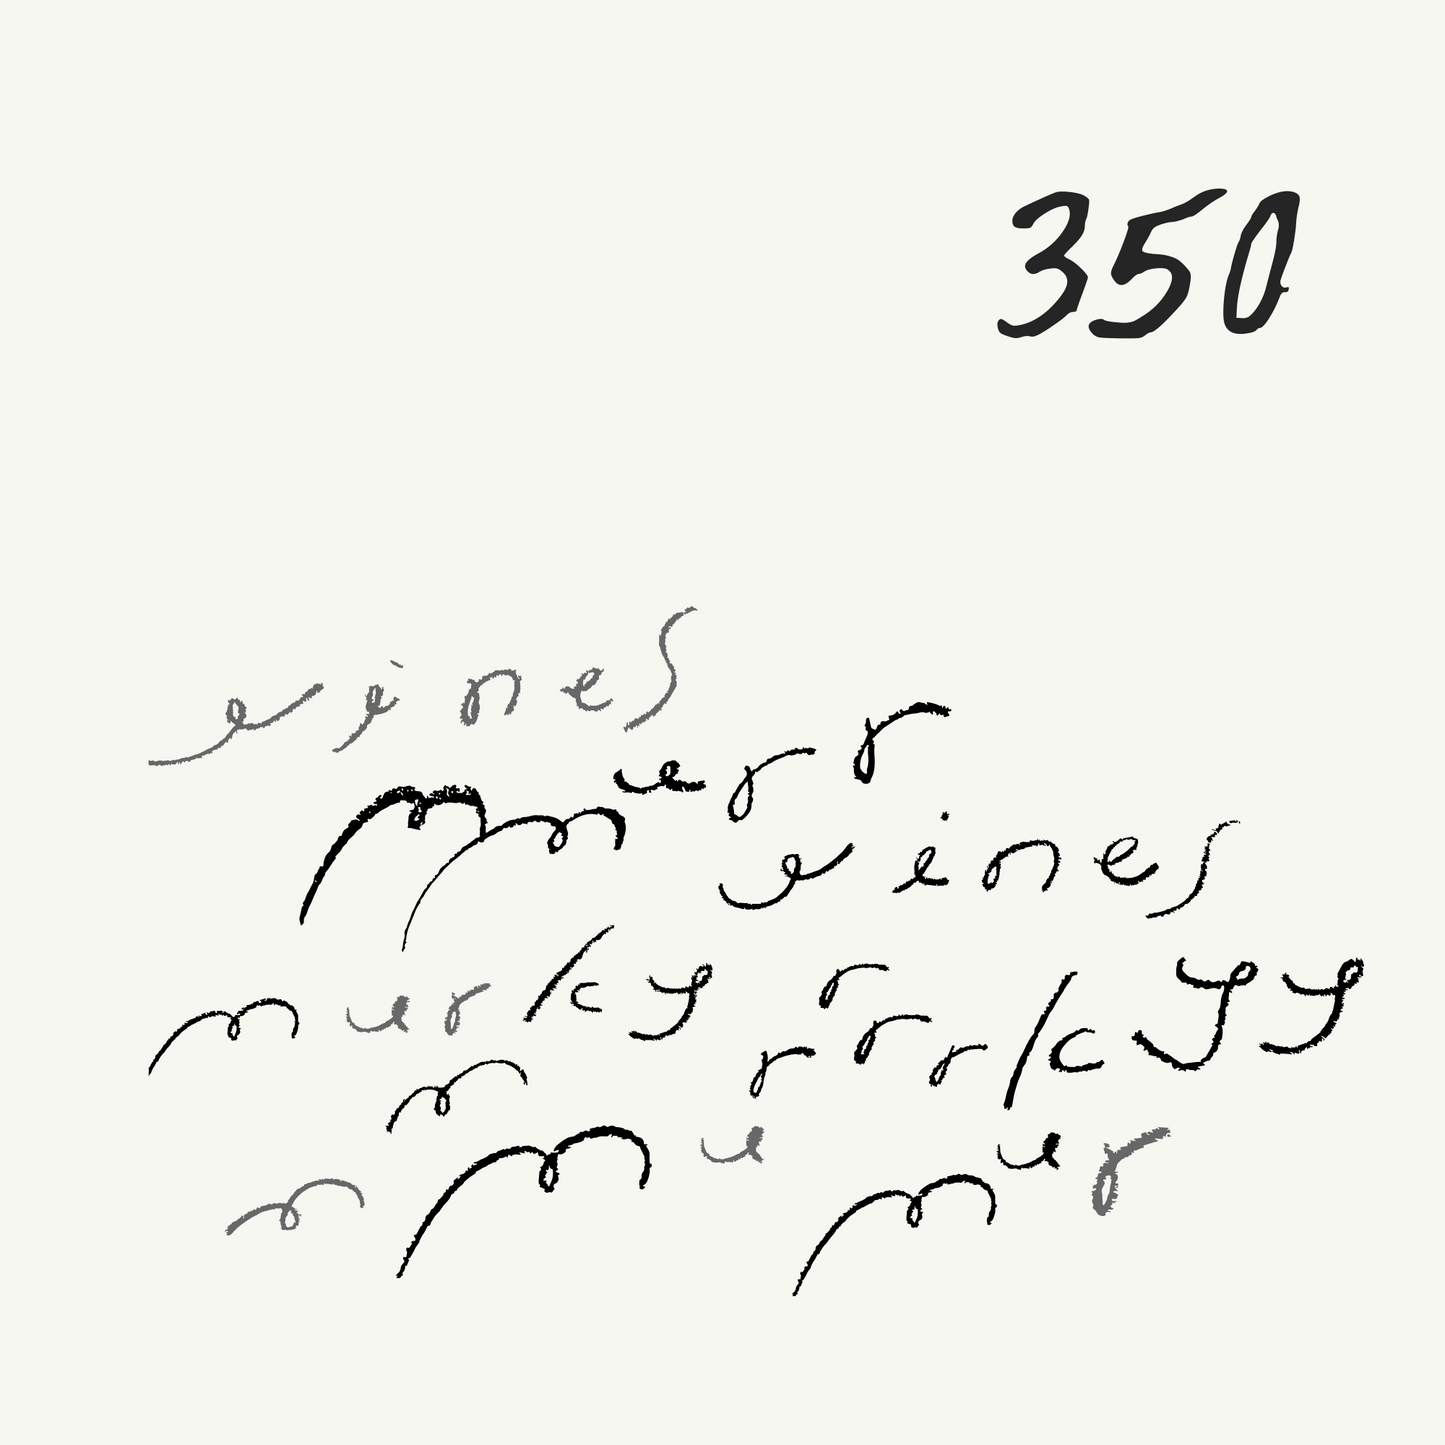 350
vines
m m u r r
vines
murky r r r r k y y
m
m m u m u r